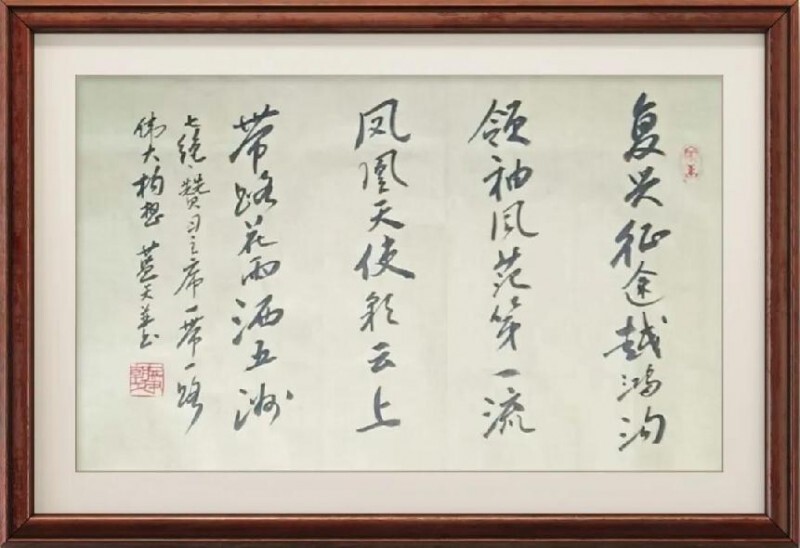 复兴征途越鸿沟
领袖风范第一流
凤凰天使彩云上
带路花雨洒五洲
七绝·赞习主席一带一路
伟大构想 蓝天草书